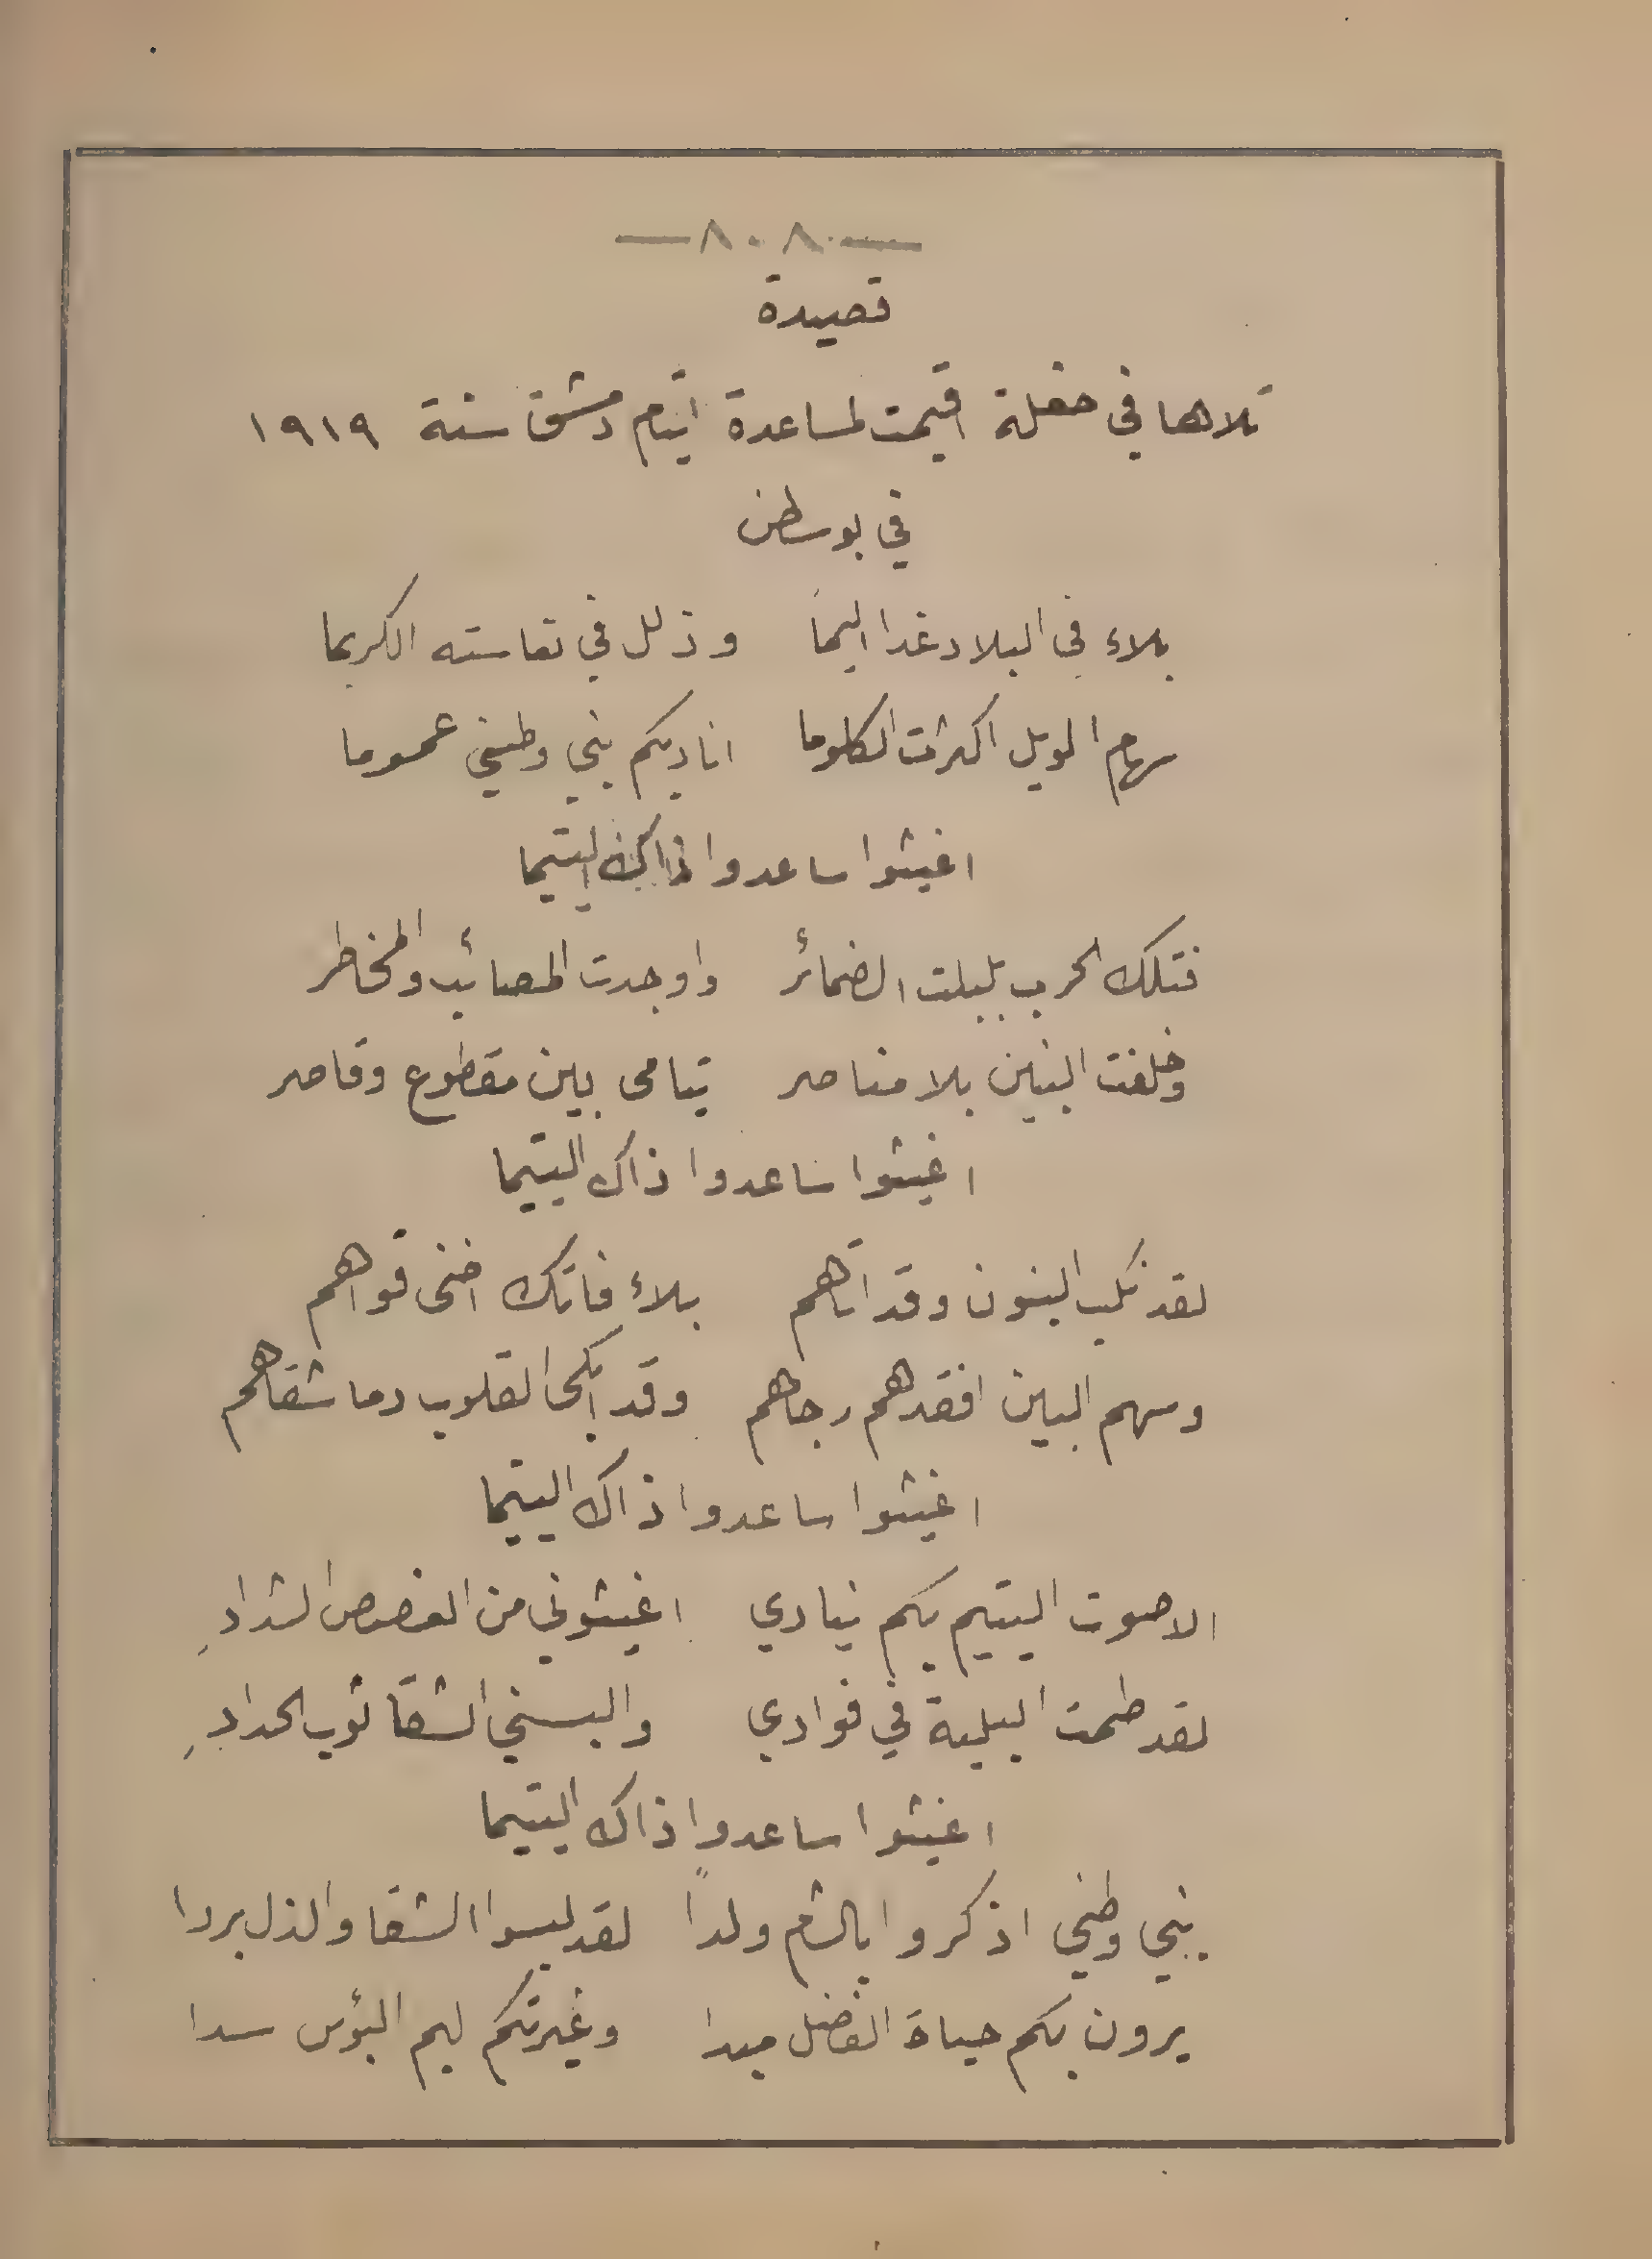 —٨٠٨—
قصيدة
تلاها في حفلة اقيمت لمساعدة ايتام دمشق سنة ١٩١٩
في بوسطن
بلاء في البلاد غدا اليما وذلل في تعاسته الكريما
سهام الويل اكثرت الكلوما اناديكم بني وطني عموما
اغيثوا ساعدوا ذاك اليتيما
فتلك الحرب بلبلت الضمائر واوجدت المصائب والمخاطر
وخلفت البنين بلا مناصر يتامى بين مقطوع وقاصر
اغيثوا ساعدوا ذاك اليتيما
لقد نكب البنون وقد اتاهم بلاء فاتك اضنى قواهم
وسهم البين افقدهم رجاهم وقد ابكى القلوب دما شقاهم
اغيثوا ساعدوا ذاك اليتيما
الا صوت اليتيم بكم ينادي اغيثوني من الغصص الشدادِ
لقد طمت البلية في فوادي والبسني الشقا ثوب الحدادِ
اغيثوا ساعدوا ذاك اليتيما
بني وطني اذكروا بالشام ولداً لقد لبسوا الشقا والذل بردا
يرون بكم حياة الفضل مبدا وغيرتكم لهم البؤس سدا